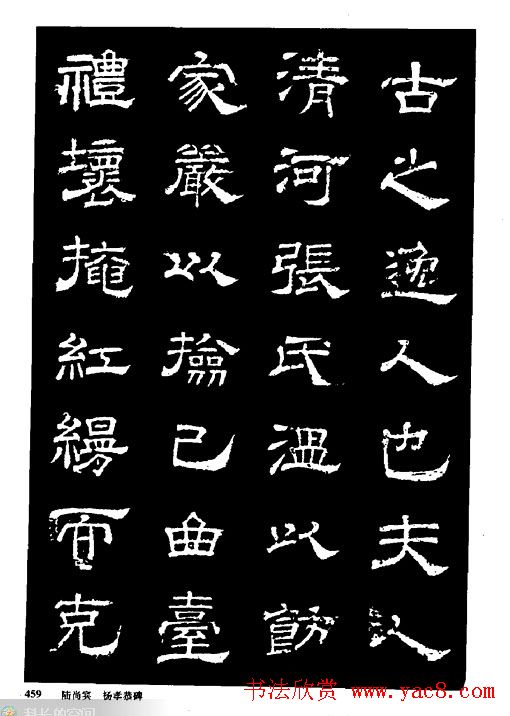 古之逸人也夫人
清河張氏溫以飭
家嚴以撿己曲臺
禮壞掩紅縵而克
459 陆尚宾 杨孝恭碑
书法欣赏 www.yac8.com
科长的空间